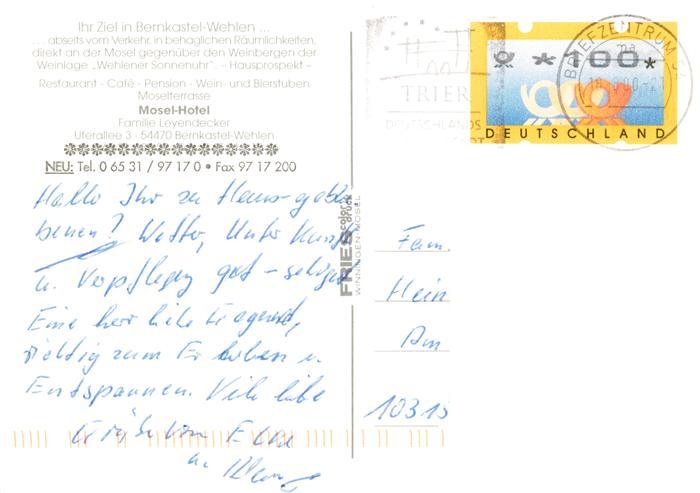 Ihr Ziel in Bernkastel-Wehlen ...
... abseits vom Verkehr, in behaglichen Räumlichkeiten,
direkt an der Mosel gegenüber den Weinbergen der
Weinlage "Wehlener Sonnenuhr". - Hausprospekt -
Restaurant - Café - Pension - Wein- und Bierstuben
Moselterrasse
Mosel-Hotel
Familie Leyendecker
Uferallee 3 · 54470 Bernkastel-Wehlen
NEU: Tel. 0 65 31 / 97 17 0 • Fax 97 17 200
Hallo Ihr zu Haus-geblie
benen! Wetter, Unterkunft
u. Verpflegung gut -
Eine herrliche Gegend,
richtig zum Erholen u.
Entspannen. Viele liebe
Grüße von
u. Klaus
FRIES color druck
WINNINGEN-MOSEL
TRIER
DEUTSCHLANDS
BRIEFZENTRUM 54
ma
*100*
DEUTSCHLAND
Fam.
Hein
Am
10315